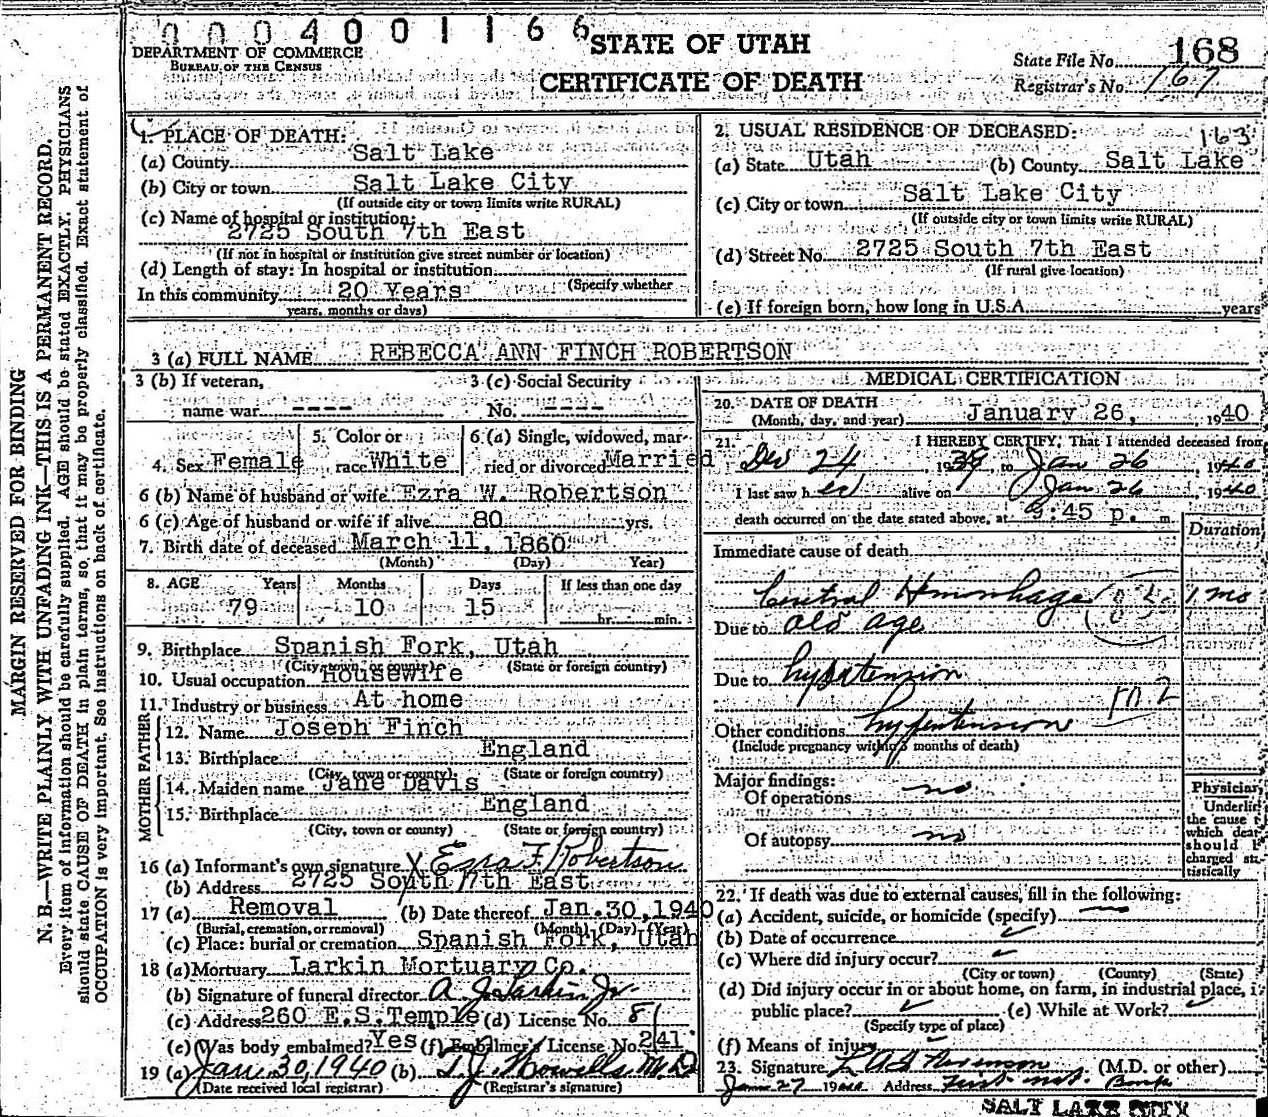 0004001166
DEPARTMENT OF COMMERCE
BUREAU OF THE CENSUS
STATE OF UTAH
CERTIFICATE OF DEATH
State File No. 168
Registrar's No. 167
MARGIN RESERVED FOR BINDING
N. B.—WRITE PLAINLY WITH UNFADING INK—THIS IS A PERMANENT RECORD.
Every item of information should be carefully supplied. AGE should be stated EXACTLY. PHYSICIANS
should state CAUSE OF DEATH in plain terms, so that it may be properly classified. Exact statement of
OCCUPATION is very important. See instructions on back of certificate.
1. PLACE OF DEATH:
(a) County Salt Lake
(b) City or town Salt Lake City
(If outside city or town limits write RURAL)
(c) Name of hospital or institution:
2725 South 7th East
(If not in hospital or institution give street number or location)
(d) Length of stay: In hospital or institution
(Specify whether
In this community 20 Years
years, months or days)
2. USUAL RESIDENCE OF DECEASED: 163
(a) State Utah (b) County Salt Lake
(c) City or town Salt Lake City
(If outside city or town limits write RURAL)
(d) Street No. 2725 South 7th East
(If rural give location)
(e) If foreign born, how long in U.S.A. years
3 (a) FULL NAME REBECCA ANN FINCH ROBERTSON
3 (b) If veteran, 3 (c) Social Security
name war ---- No. ----
4. Sex Female 5. Color or race White 6 (a) Single, widowed, married or divorced Married
6 (b) Name of husband or wife Ezra W. Robertson
6 (c) Age of husband or wife if alive 80 yrs.
7. Birth date of deceased March 11, 1860
(Month) (Day) Year)
8. AGE Years Months Days If less than one day
79 10 15 hr. min.
9. Birthplace Spanish Fork, Utah
(City, town or county) (State or foreign country)
10. Usual occupation Housewife
11. Industry or business At home
FATHER
12. Name Joseph Finch
13. Birthplace England
(City, town or county) (State or foreign country)
MOTHER
14. Maiden name Jane Davis
15. Birthplace England
(City, town or county) (State or foreign country)
16 (a) Informant's own signature X Ezra F. Robertson
(b) Address 2725 South 7th East
17 (a) Removal (b) Date thereof Jan. 30, 1940
(Burial, cremation, or removal) (Month) (Day) (Year)
(c) Place: burial or cremation Spanish Fork, Utah
18 (a) Mortuary Larkin Mortuary Co.
(b) Signature of funeral director A. J. Larkin Jr.
(c) Address 260 E.S. Temple (d) License No. 81
(e) Was body embalmed? Yes (f) Embalmer's License No. 241
19 (a) Jan. 30, 1940 (b) T. J. Howells M.D.
(Date received local registrar) (Registrar's signature)
MEDICAL CERTIFICATION
20. DATE OF DEATH
(Month, day, and year) January 26, 1940
21. I HEREBY CERTIFY, That I attended deceased from
Dec 24, 1939 to Jan 26, 1940
I last saw her alive on Jan 26, 1940
death occurred on the date stated above, at :45 p. m.
Duration
Immediate cause of death
Hemorrhage 1 mo
Due to old age
Due to hypertension
Other conditions hypertension
(Include pregnancy within 3 months of death)
Major findings:
Of operations no
Of autopsy no
Physician
Underline
the cause
which dea
should b
charged sta-
tistically
22. If death was due to external causes, fill in the following:
(a) Accident, suicide, or homicide (specify)
(b) Date of occurrence
(c) Where did injury occur?
(City or town) (County) (State)
(d) Did injury occur in or about home, on farm, in industrial place, i
public place? (e) While at Work?
(Specify type of place)
(f) Means of injury
23. Signature (M.D. or other)
Jan 27 1940 Address First Nat. Bank
SALT LAKE CITY